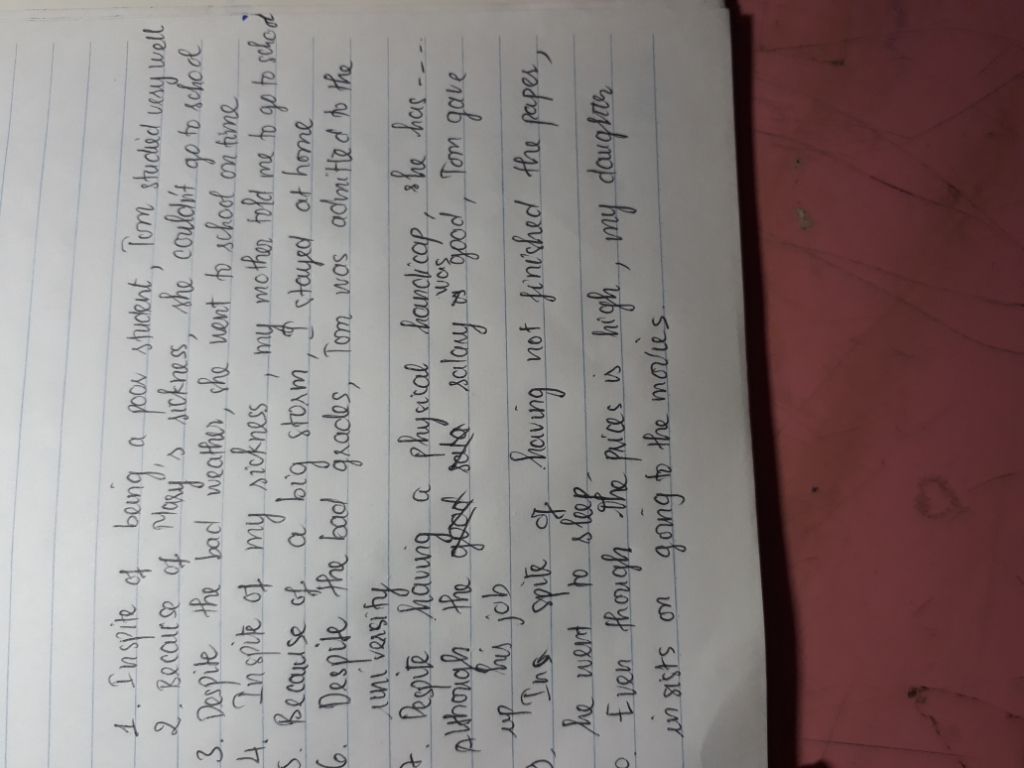 1. Inspite of being a poor student, Tom studied very well
2. Because of Mary's sickness, she couldn't go to school
3. Despite the bad weather, she went to school on time
4. Inspite of my sickness, my mother told me to go to school
5. Because of a big storm, I stayed at home
6. Despite the bad grades, Tom was admitted to the
university
7. Despite having a physical handicap, she has ----
Although the salary was good, Tom gave
up his job
In spite of having not finished the paper,
he went to sleep
Even though the prices is high, my daughter
insists on going to the movies.